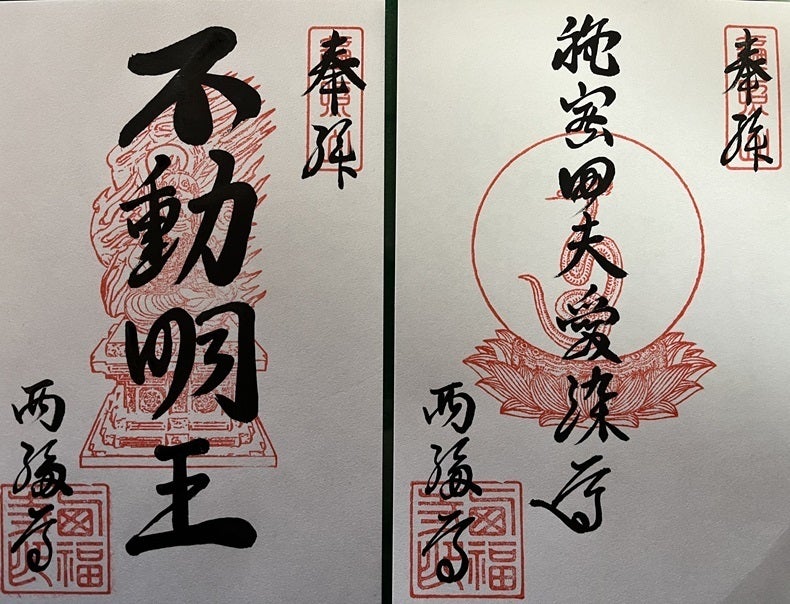 奉拝
不動明王
西福寺
奉拝
田夫愛染尊
西福寺